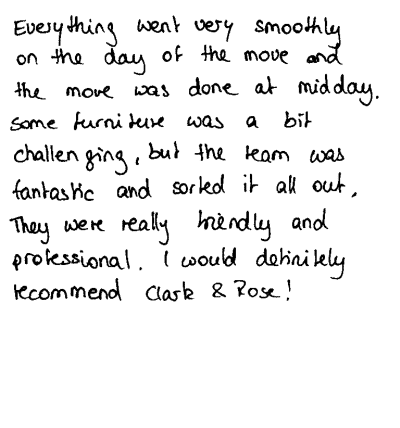 Everything went very smoothly
on the day of the move and
the move was done at midday.
Some furniture was a bit
challenging, but the team was
fantastic and sorted it all out.
They were really friendly and
professional. I would definitely
recommend Clark & Rose!